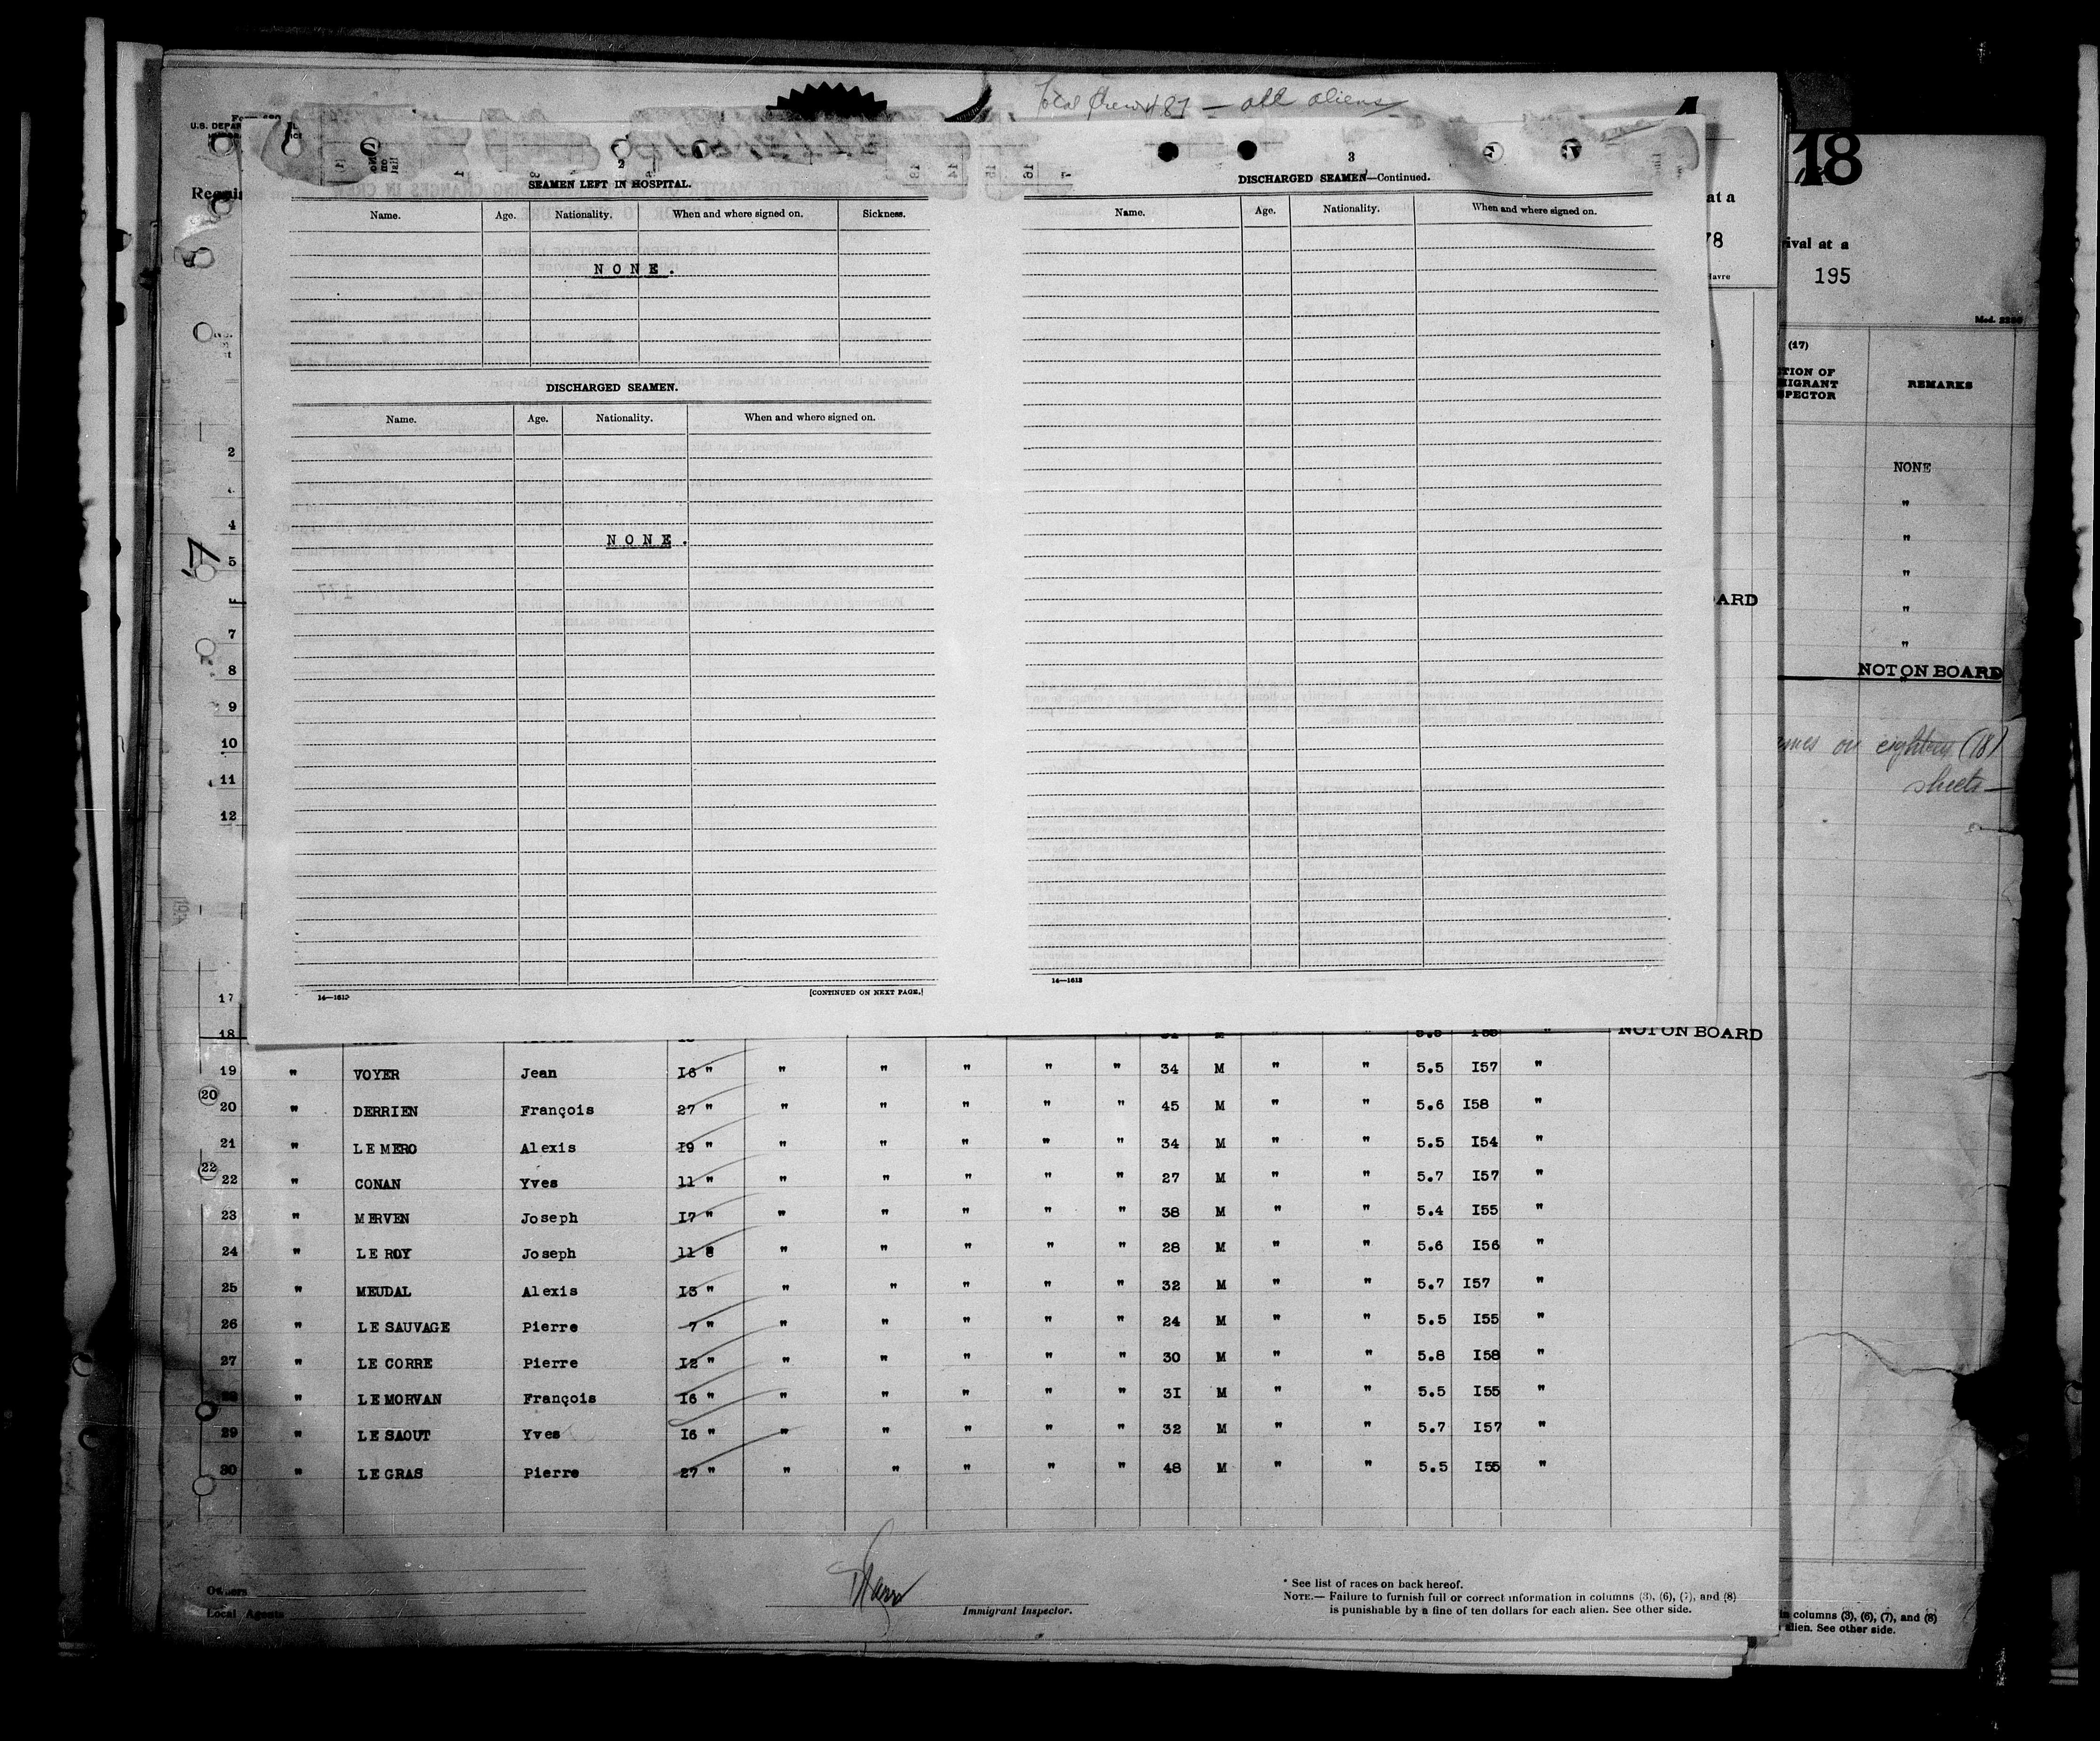 Total Crew 487 — all aliens
U.S. DEPAR
18
at a
78
Havre
ival at a
195
2
SEAMEN LEFT IN HOSPITAL.
Name. Age. Nationality. When and where signed on. Sickness.
NONE.
DISCHARGED SEAMEN.
Name. Age. Nationality. When and where signed on.
NONE.
14—1613
[CONTINUED ON NEXT PAGE.]
3
DISCHARGED SEAMEN—Continued.
Name. Age. Nationality. When and where signed on.
14—1613
(17)
TION OF
IGRANT
SPECTOR
REMARKS
NONE
"
"
"
"
"
ARD
NOT ON BOARD
on eighteen (18)
sheets —
2
4
5
7
8
9
10
11
12
17
18 NOT ON BOARD
19 " VOYER Jean I6 " " " " " " 34 M " " 5.5 I57 "
20 20 " DERRIEN François 27 " " " " " " 45 M " " 5.6 I58 "
21 " LE MERO Alexis I9 " " " " " " 34 M " " 5.5 I54 "
22 22 " CONAN Yves 11 " " " " " " 27 M " " 5.7 I57 "
23 " MERVEN Joseph I7 " " " " " " 38 M " " 5.4 I55 "
24 " LE ROY Joseph 11 " " " " " 28 M " " 5.6 I56 "
25 " MEUDAL Alexis I3 " " " " " " 32 M " " 5.7 I57 "
26 " LE SAUVAGE Pierre 7 " " " " " " 24 M " " 5.5 I55 "
27 " LE CORRE Pierre I2 " " " " " " 30 M " " 5.8 I58 "
28 " LE MORVAN François I6 " " " " " " 3I M " " 5.5 I55 "
29 " LE SAOUT Yves I6 " " " " " " 32 M " " 5.7 I57 "
30 " LE GRAS Pierre 27 " " " " " " 48 M " " 5.5 I55 "
Owners
Local Agents
Immigrant Inspector.
* See list of races on back hereof.
NOTE.— Failure to furnish full or correct information in columns (3), (6), (7), and (8)
is punishable by a fine of ten dollars for each alien. See other side.
in columns (3), (6), (7), and (8)
alien. See other side.